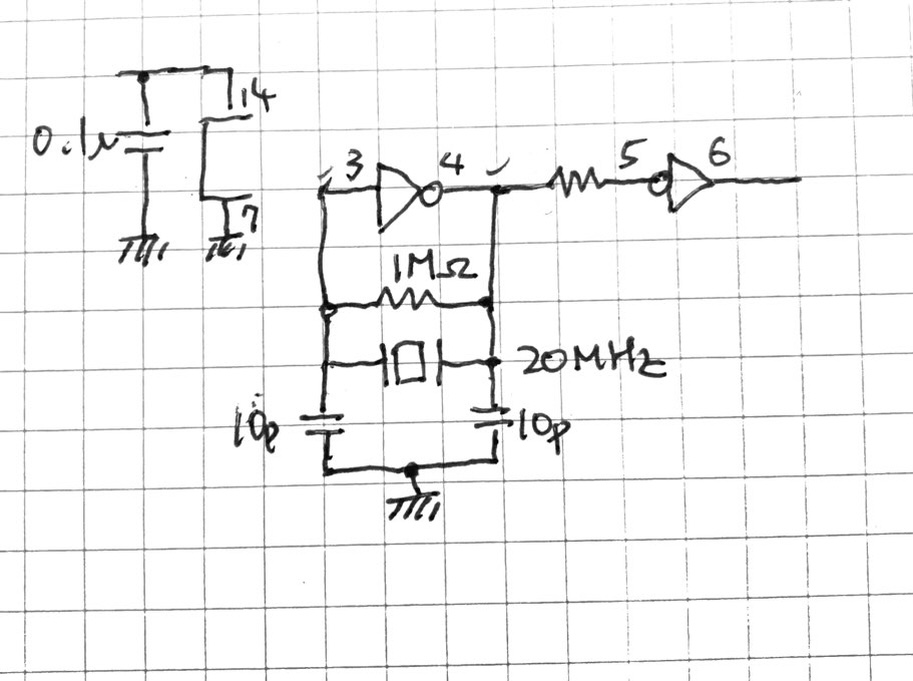 14
0.1μ
7
3 4 5 6
1MΩ
20MHz
10p 10p